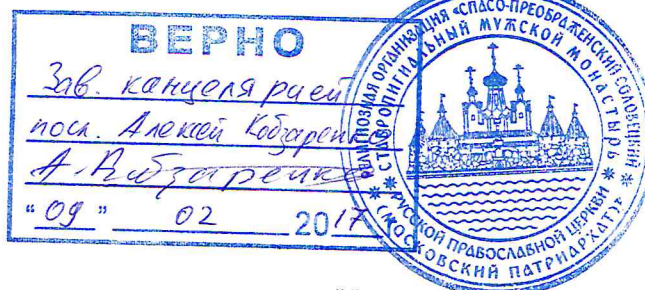 ВЕРНО
Зав. канцелярией
посл. Алексей Кобзаренко
А. Кобзаренко
"09" 02 2017
РЕЛИГИОЗНАЯ ОРГАНИЗАЦИЯ «СПАСО-ПРЕОБРАЖЕНСКИЙ СОЛОВЕЦКИЙ
СТАВРОПИГИАЛЬНЫЙ МУЖСКОЙ МОНАСТЫРЬ
РУССКОЙ ПРАВОСЛАВНОЙ ЦЕРКВИ
(МОСКОВСКИЙ ПАТРИАРХАТ)»